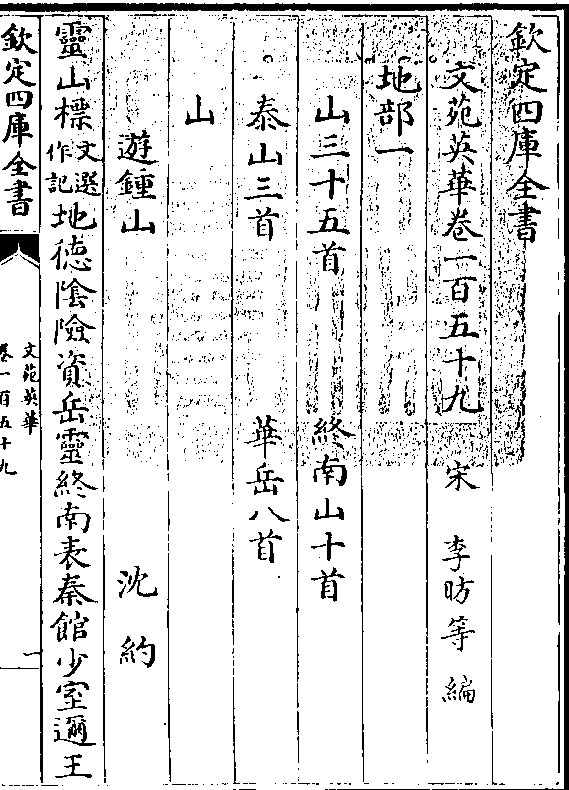 欽定四庫全書
文苑英華卷一百五十九 宋 李昉等 編
地部一
山三十五首 終南山十首
泰山三首 華岳八首
山
遊鍾山 沈約
靈山標文選作記地徳隂險資岳靈終南表秦館少室邇王
欽定四庫全書
文苑英華
卷一百五十九
一